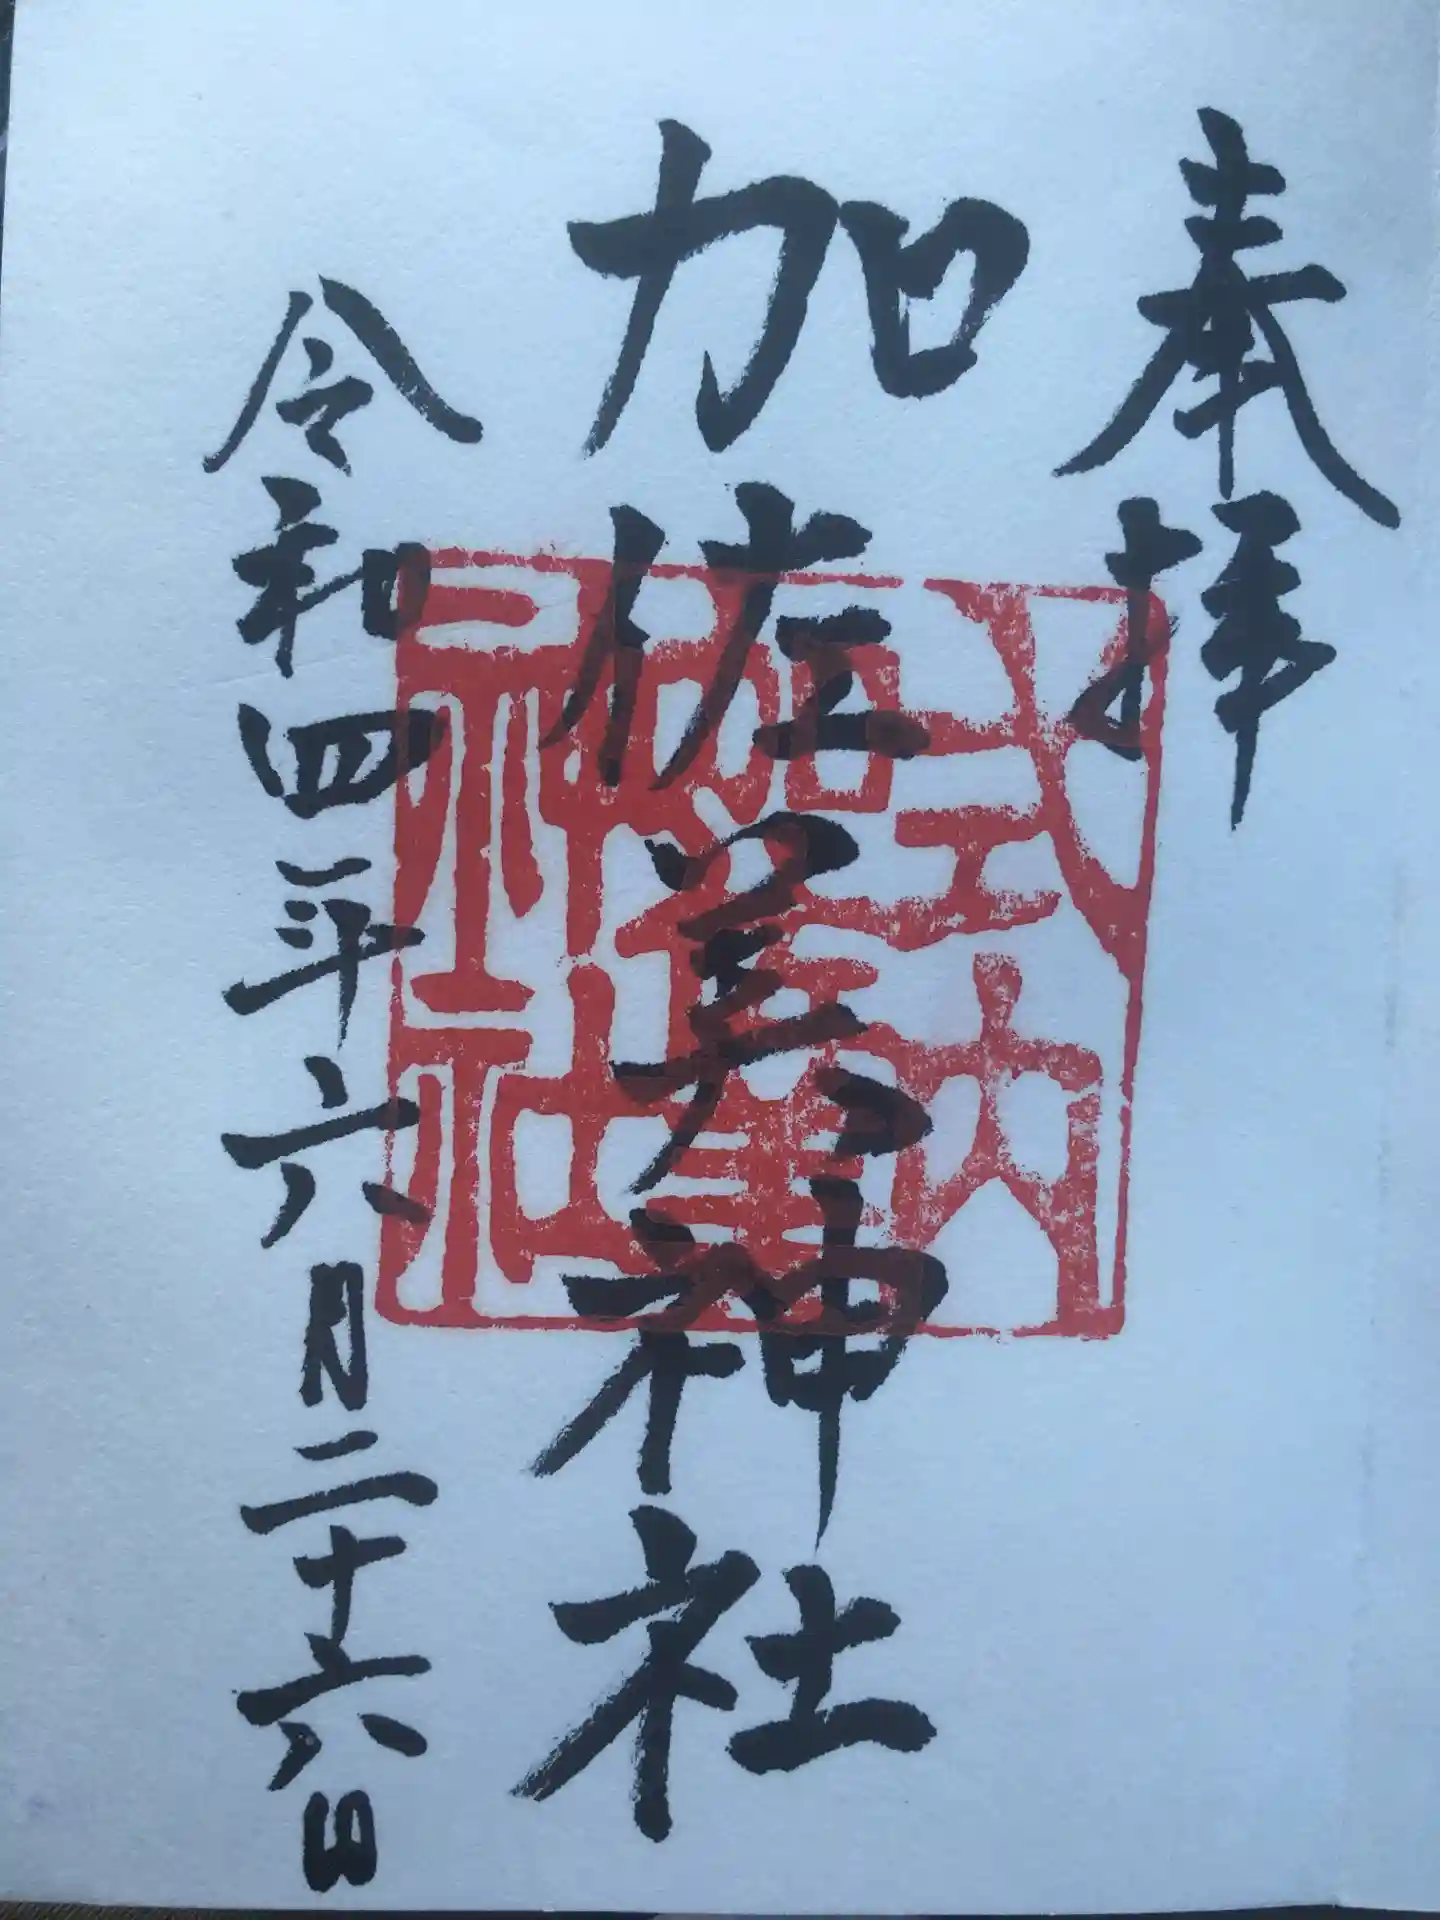 奉拝
加佐美神社
式内加佐美神社
令和四年六月二十六日